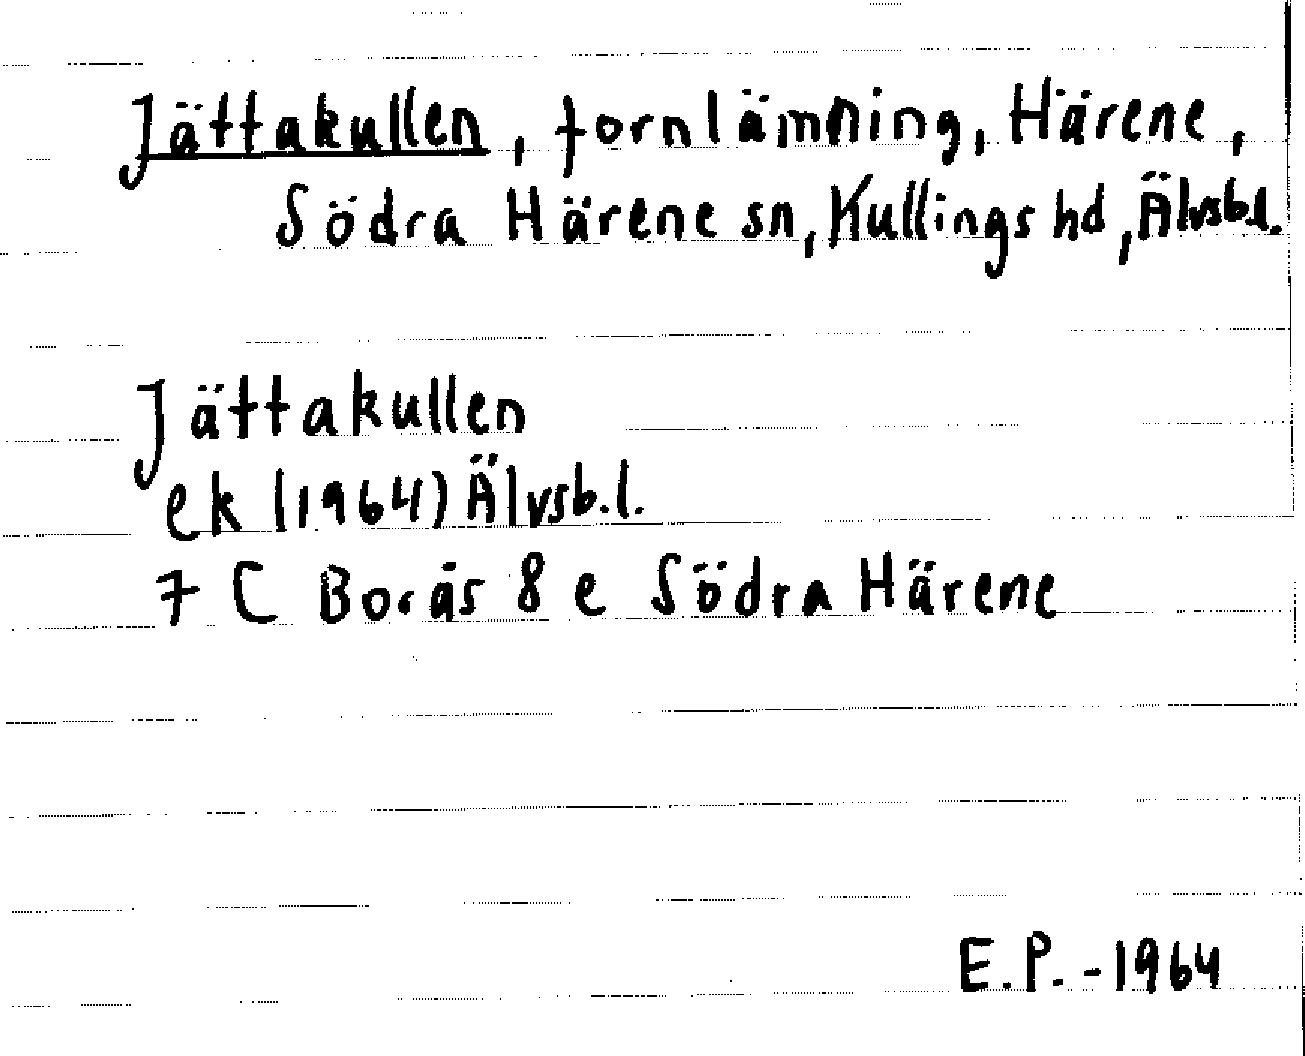 Jättakullen, fornlämning, Härene,
Södra Härene sn, Kullings hd, Älvsb.l.
Jättakullen
ek (1964) Älvsb.l.
7 C Borås 8 e Södra Härene
E.P.-1964